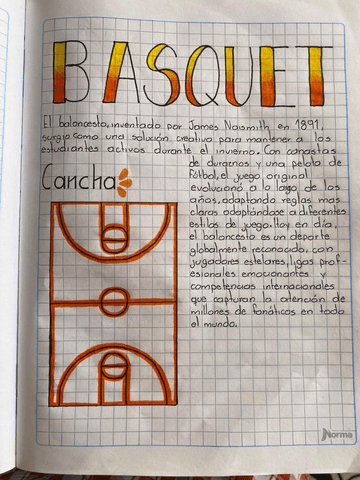 BASQUET
El baloncesto, inventado por James Naismith en 1891
surgio como una solución creativa para mantener a los
estudiantes activos durante el invierno. Con canastas
de duraznos y una pelota de
fútbol, el juego original
evolucionó a lo lago de los
años, adaptando reglas mas
claras adaptándose a diferentes
estilos de juego. Hoy en día,
el baloncesto es un deporte
globalmente reconocido, con
jugadores estelares, ligas prof-
esionales emocionantes y
competencias internacionales
que capturan la atención de
millones de fanáticos en todo
el mundo.
Cancha
Norma